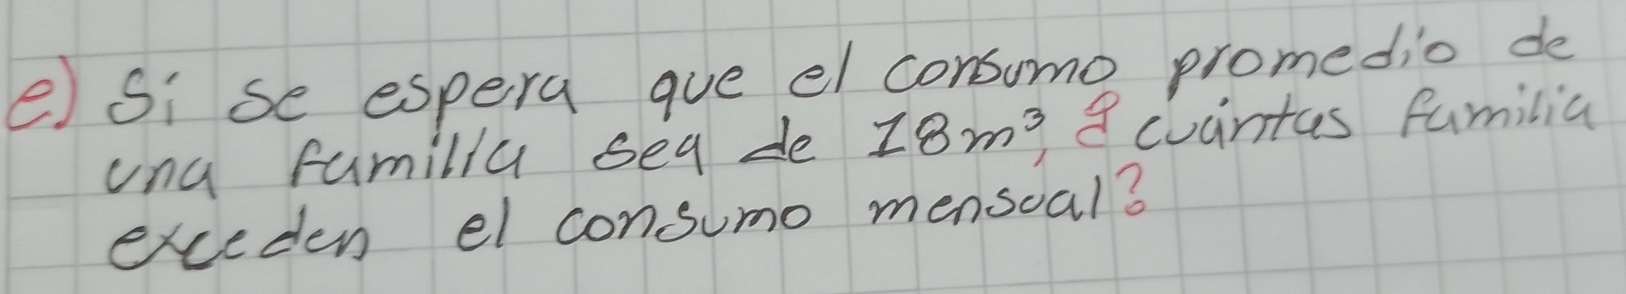 e) Si se espera que el consumo promedio de
una familia sea de 18m³, ¿cuántas familia
exceden el consumo mensual?